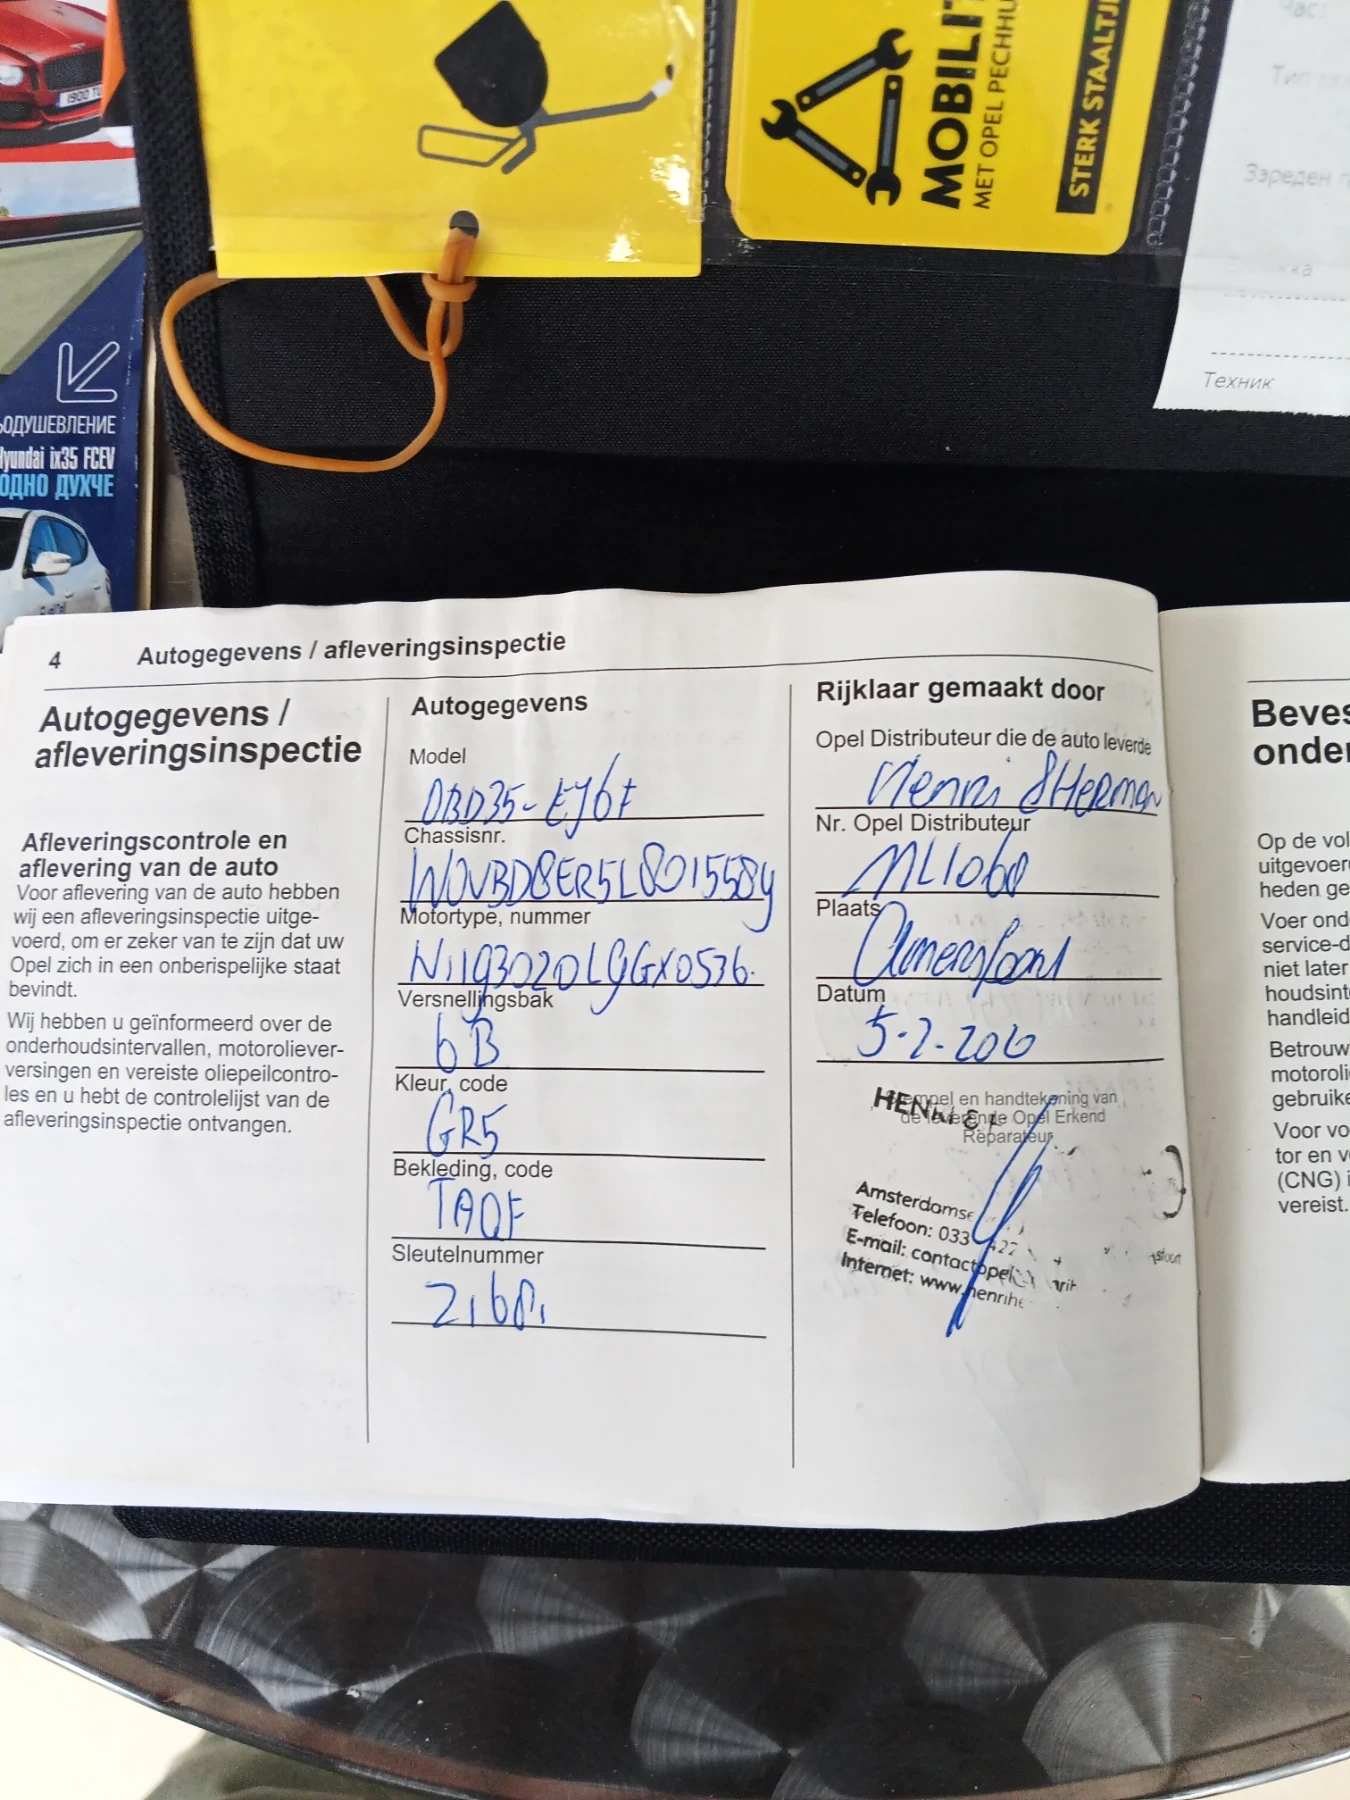 1900 TU
MOBILIT
MET OPEL PECHHU
STERK STAALTJ
Час:
Тип
Зэреден
Техник
ОДУШЕВЛЕНИЕ
Hyundai ix35 FCEV
ОДНО ДУХЧЕ
4 Autogegevens / afleveringsinspectie
Autogegevens /
afleveringsinspectie
Afleveringscontrole en
aflevering van de auto
Voor aflevering van de auto hebben
wij een afleveringsinspectie uitge-
voerd, om er zeker van te zijn dat uw
Opel zich in een onberispelijke staat
bevindt.
Wij hebben u geïnformeerd over de
onderhoudsintervallen, motoroliever-
versingen en vereiste oliepeilcontro-
les en u hebt de controlelijst van de
afleveringsinspectie ontvangen.
Autogegevens
Model
0BD35-EJ6F
Chassisnr.
W0VBD8ER5L8015584
Motortype, nummer
Versnellingsbak
6B
Kleur, code
GR5
Bekleding, code
TAQF
Sleutelnummer
Rijklaar gemaakt door
Opel Distributeur die de auto leverde
Henri &Herman
Nr. Opel Distributeur
NL1060
Plaats
Amersfoort
Datum
5-2-20
Stempel en handtekening van
de leverende Opel Erkend
Reparateur
HENRI &
Amsterdamse
Telefoon: 033 422
E-mail: contactopel
Internet: www.henrihe
Beves
onder
Op de vol
uitgevoer
heden ge
Voer ond
service-d
niet later
houdsint
handleid
Betrouw
motoroli
gebruike
Voor vo
tor en v
(CNG) i
vereist.